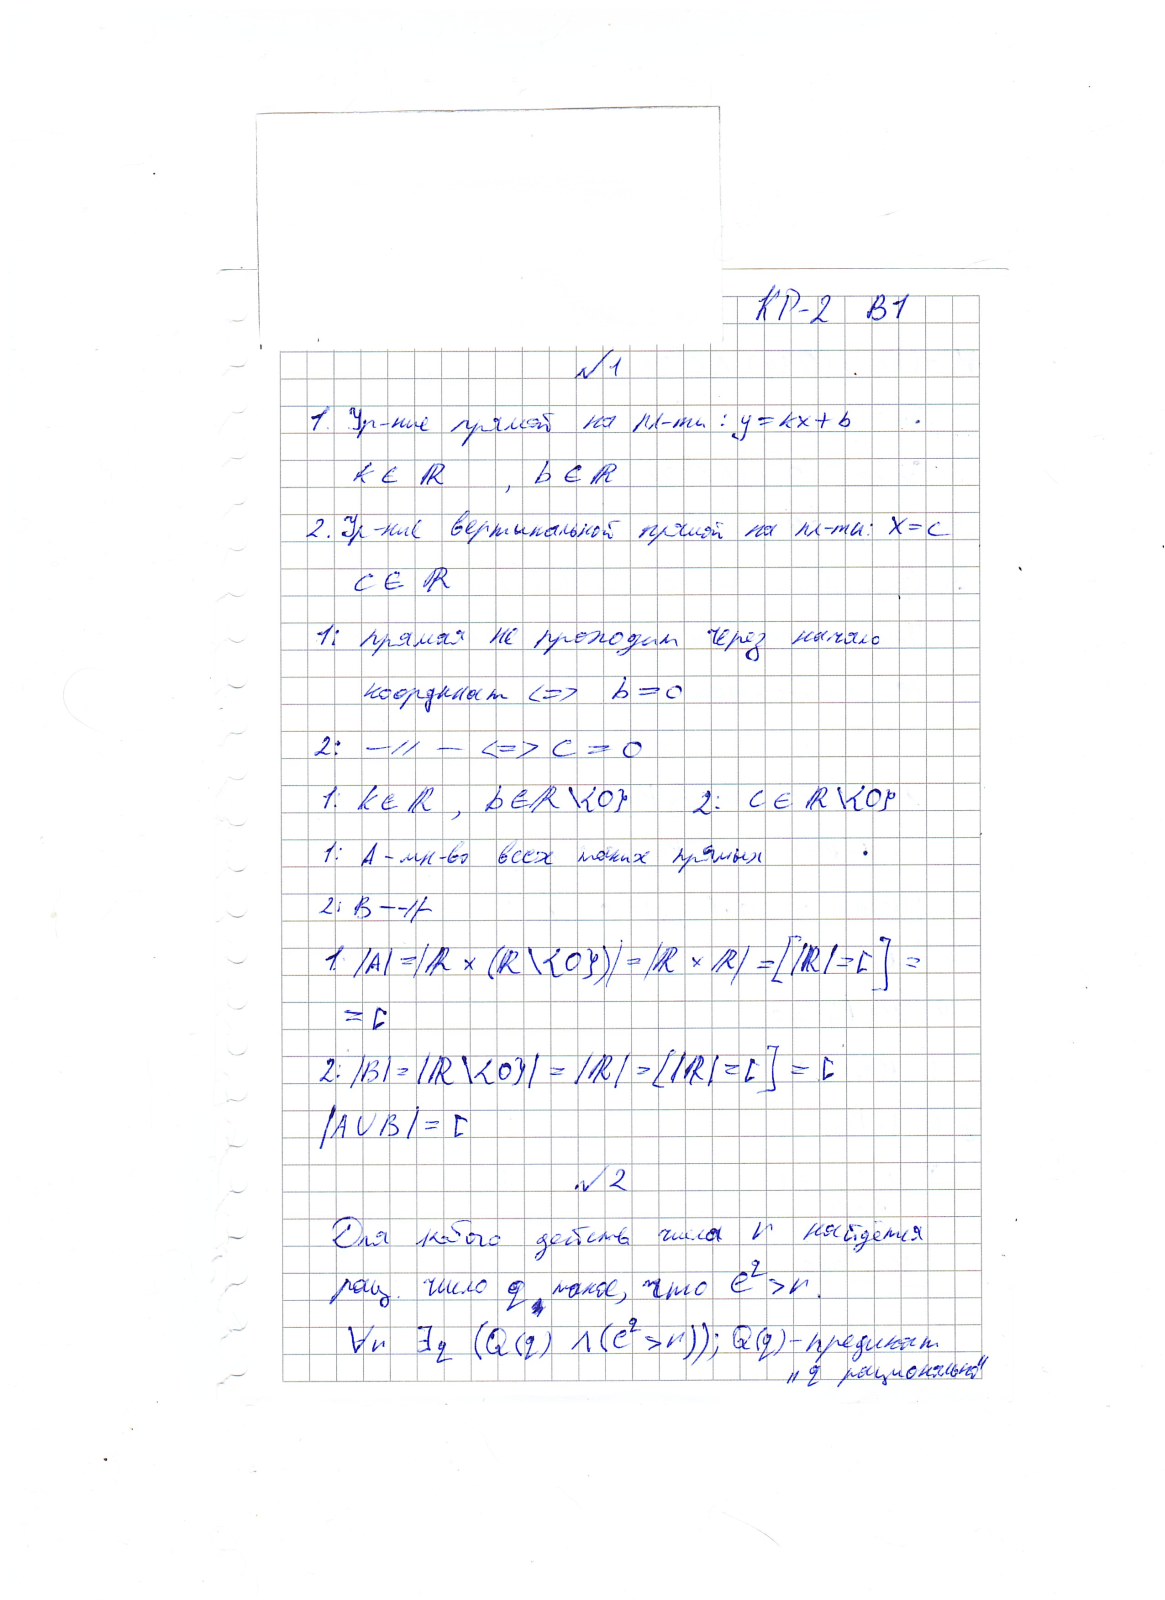 КР-2 В1
№1
1. Ур-ние прямой на пл-ти: y = kx + b
k ∈ ℝ , b ∈ ℝ
2. Ур-ние вертикальной прямой на пл-ти: x = c
c ∈ ℝ
1: прямая не проходит через начало
координат <=> b = 0
2: —//— <=> c = 0
1: k ∈ ℝ , b ∈ ℝ\{0} 2: c ∈ ℝ\{0}
1: A - мн-во всех таких прямых
2: B —//—
1: |A| = |ℝ × (ℝ\{0})| = |ℝ × ℝ| = [|ℝ| = c] =
= c
2: |B| = |ℝ\{0}| = |ℝ| = [|ℝ| = c] = c
|A ∪ B| = c
№2
Для любого действ числа r найдётся
рац. число q, такое, что e^q > r.
∀r ∃q (Q(q) ∧ (e^q > r)); Q(q) - предикат
„q рационально"